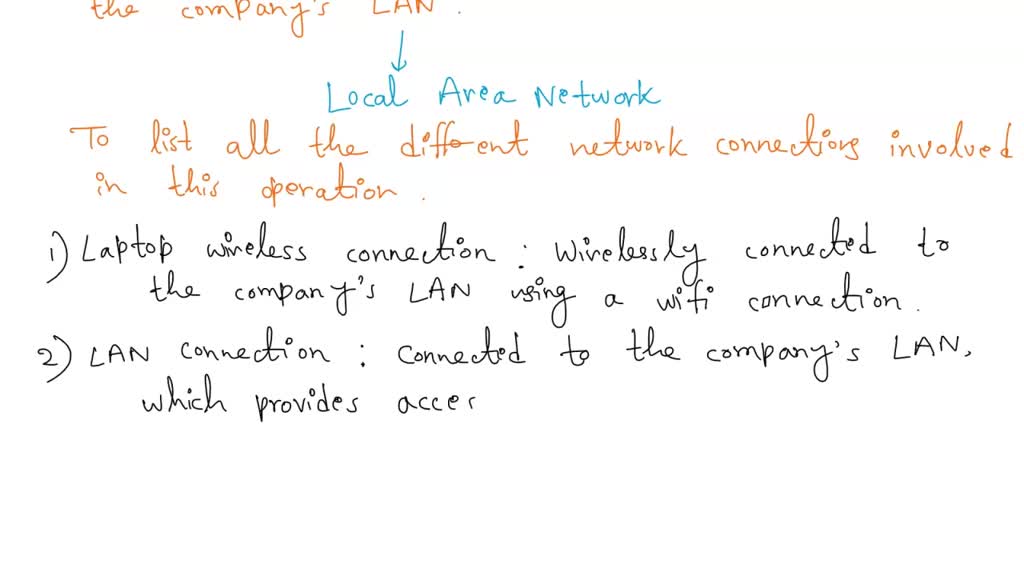 the company's LAN.
Local Area Network
To list all the different network connections involved
in this operation.
1) Laptop wireless connection : Wirelessly connected to
the company's LAN using a wifi connection.
2) LAN connection : Connected to the company's LAN,
which provides acces